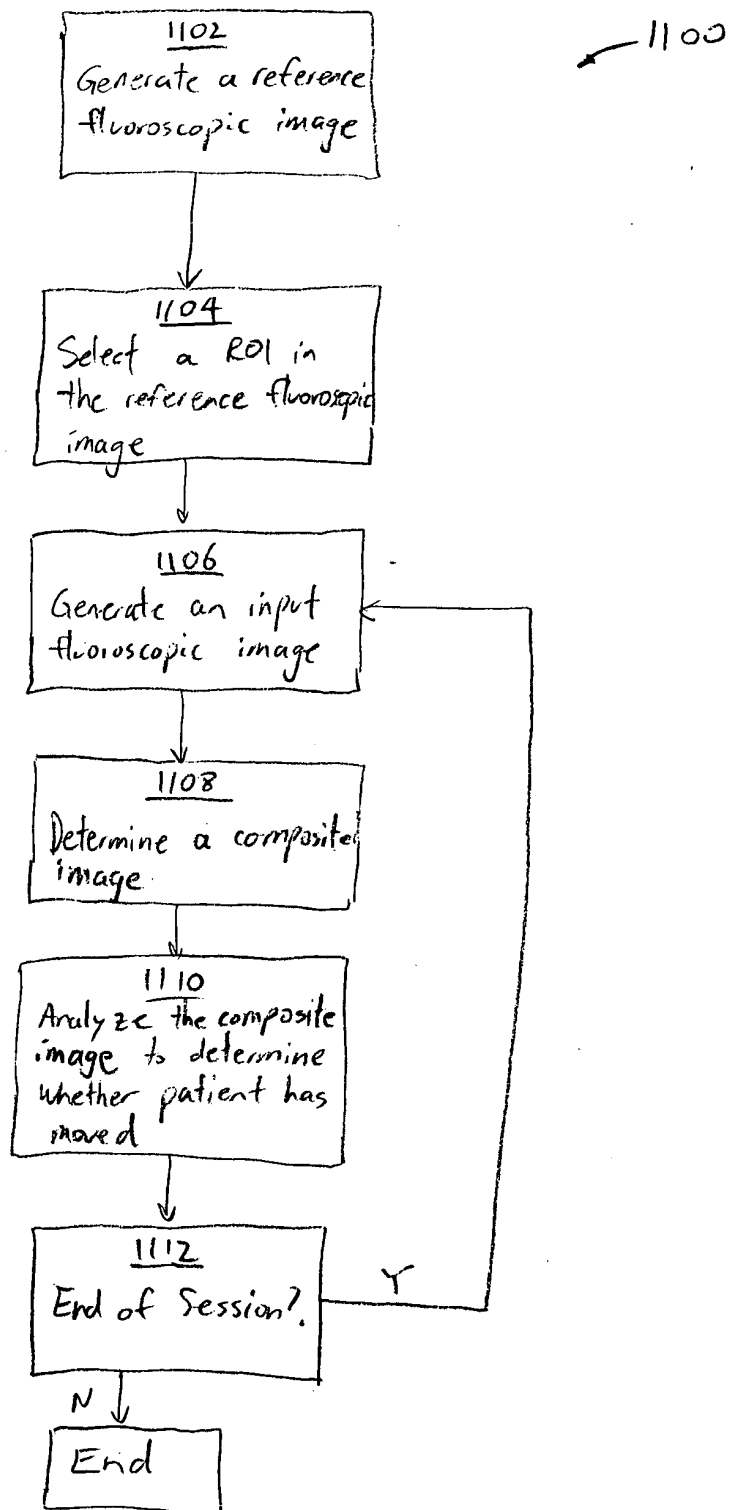 1100
1102
Generate a reference
fluoroscopic image
1104
Select a ROI in
the reference fluorosopic
image
1106
Generate an input
fluoroscopic image
1108
Determine a composite
image
1110
Analyze the composite
image to determine
whether patient has
moved
1112
End of Session?.
Y
N
End